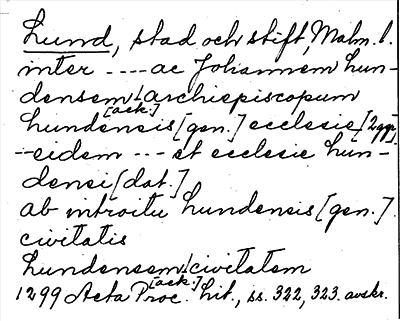 Lund, stad och stift, Malm. l.
inter ---- ac Johannem Lun-
densem [ack.] archiepiscopum
Lundensis [gen.] ecclesie [2 ggr]
--eidem --- et ecclesie Lun-
densi [dat.]
ab introitu Lundensis [gen.]
civitatis
Lundensem [ack.] civitatem
1299 Acta Proc. Lit., ss. 322, 323. avskr.